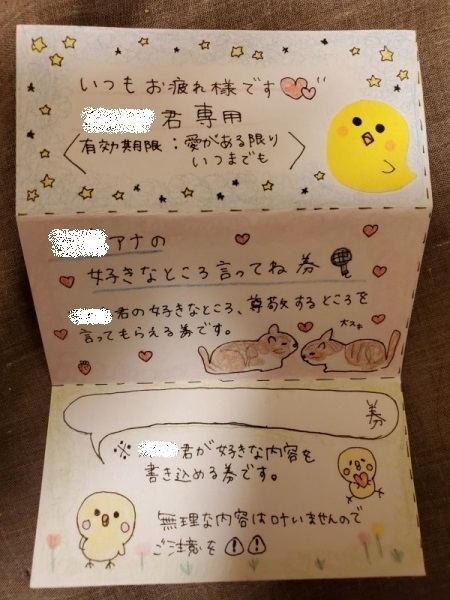 いつもお疲れ様です
君専用
有効期限：愛がある限り
いつまでも
アナの
好きなところ言ってね券
君の好きなところ、尊敬するところを
言ってもらえる券です。
大スキ
券
※ 君が好きな内容を
書き込める券です。
無理な内容は叶いませんので
ご注意を